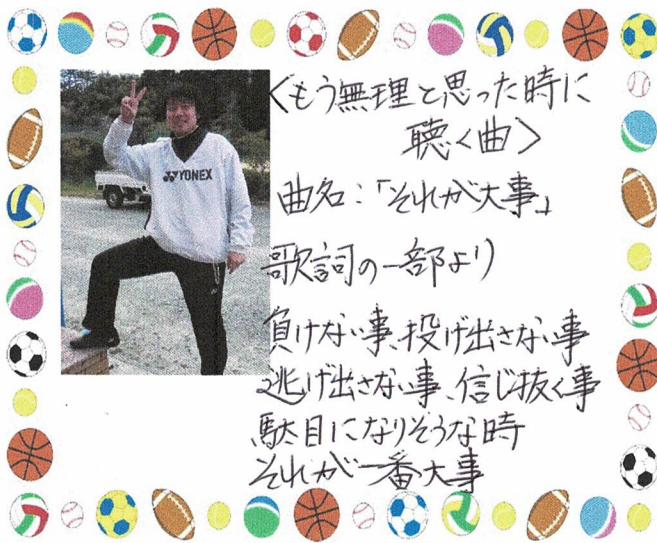 <もう無理と思った時に
聴く曲>
YONEX
曲名:「それが大事」
歌詞の一部より
負けない事、投げ出さない事
逃げ出さない事、信じ抜く事
駄目になりそうな時
それが一番大事